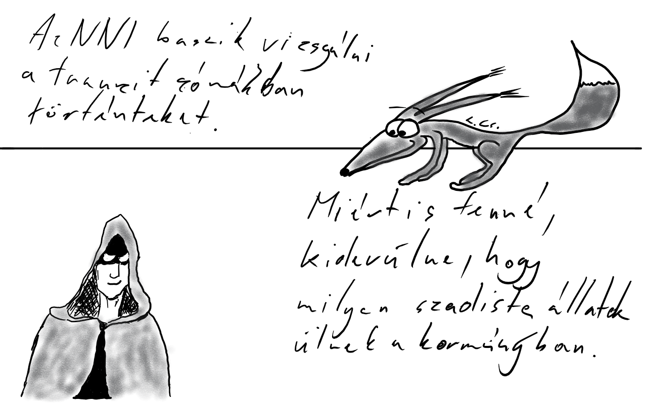 Az NNI baszik vizsgálni
a tranzit zónákban
történteket.
Miért is tenné,
kiderülne, hogy
milyen szadista állatok
ülnek a kormányban.